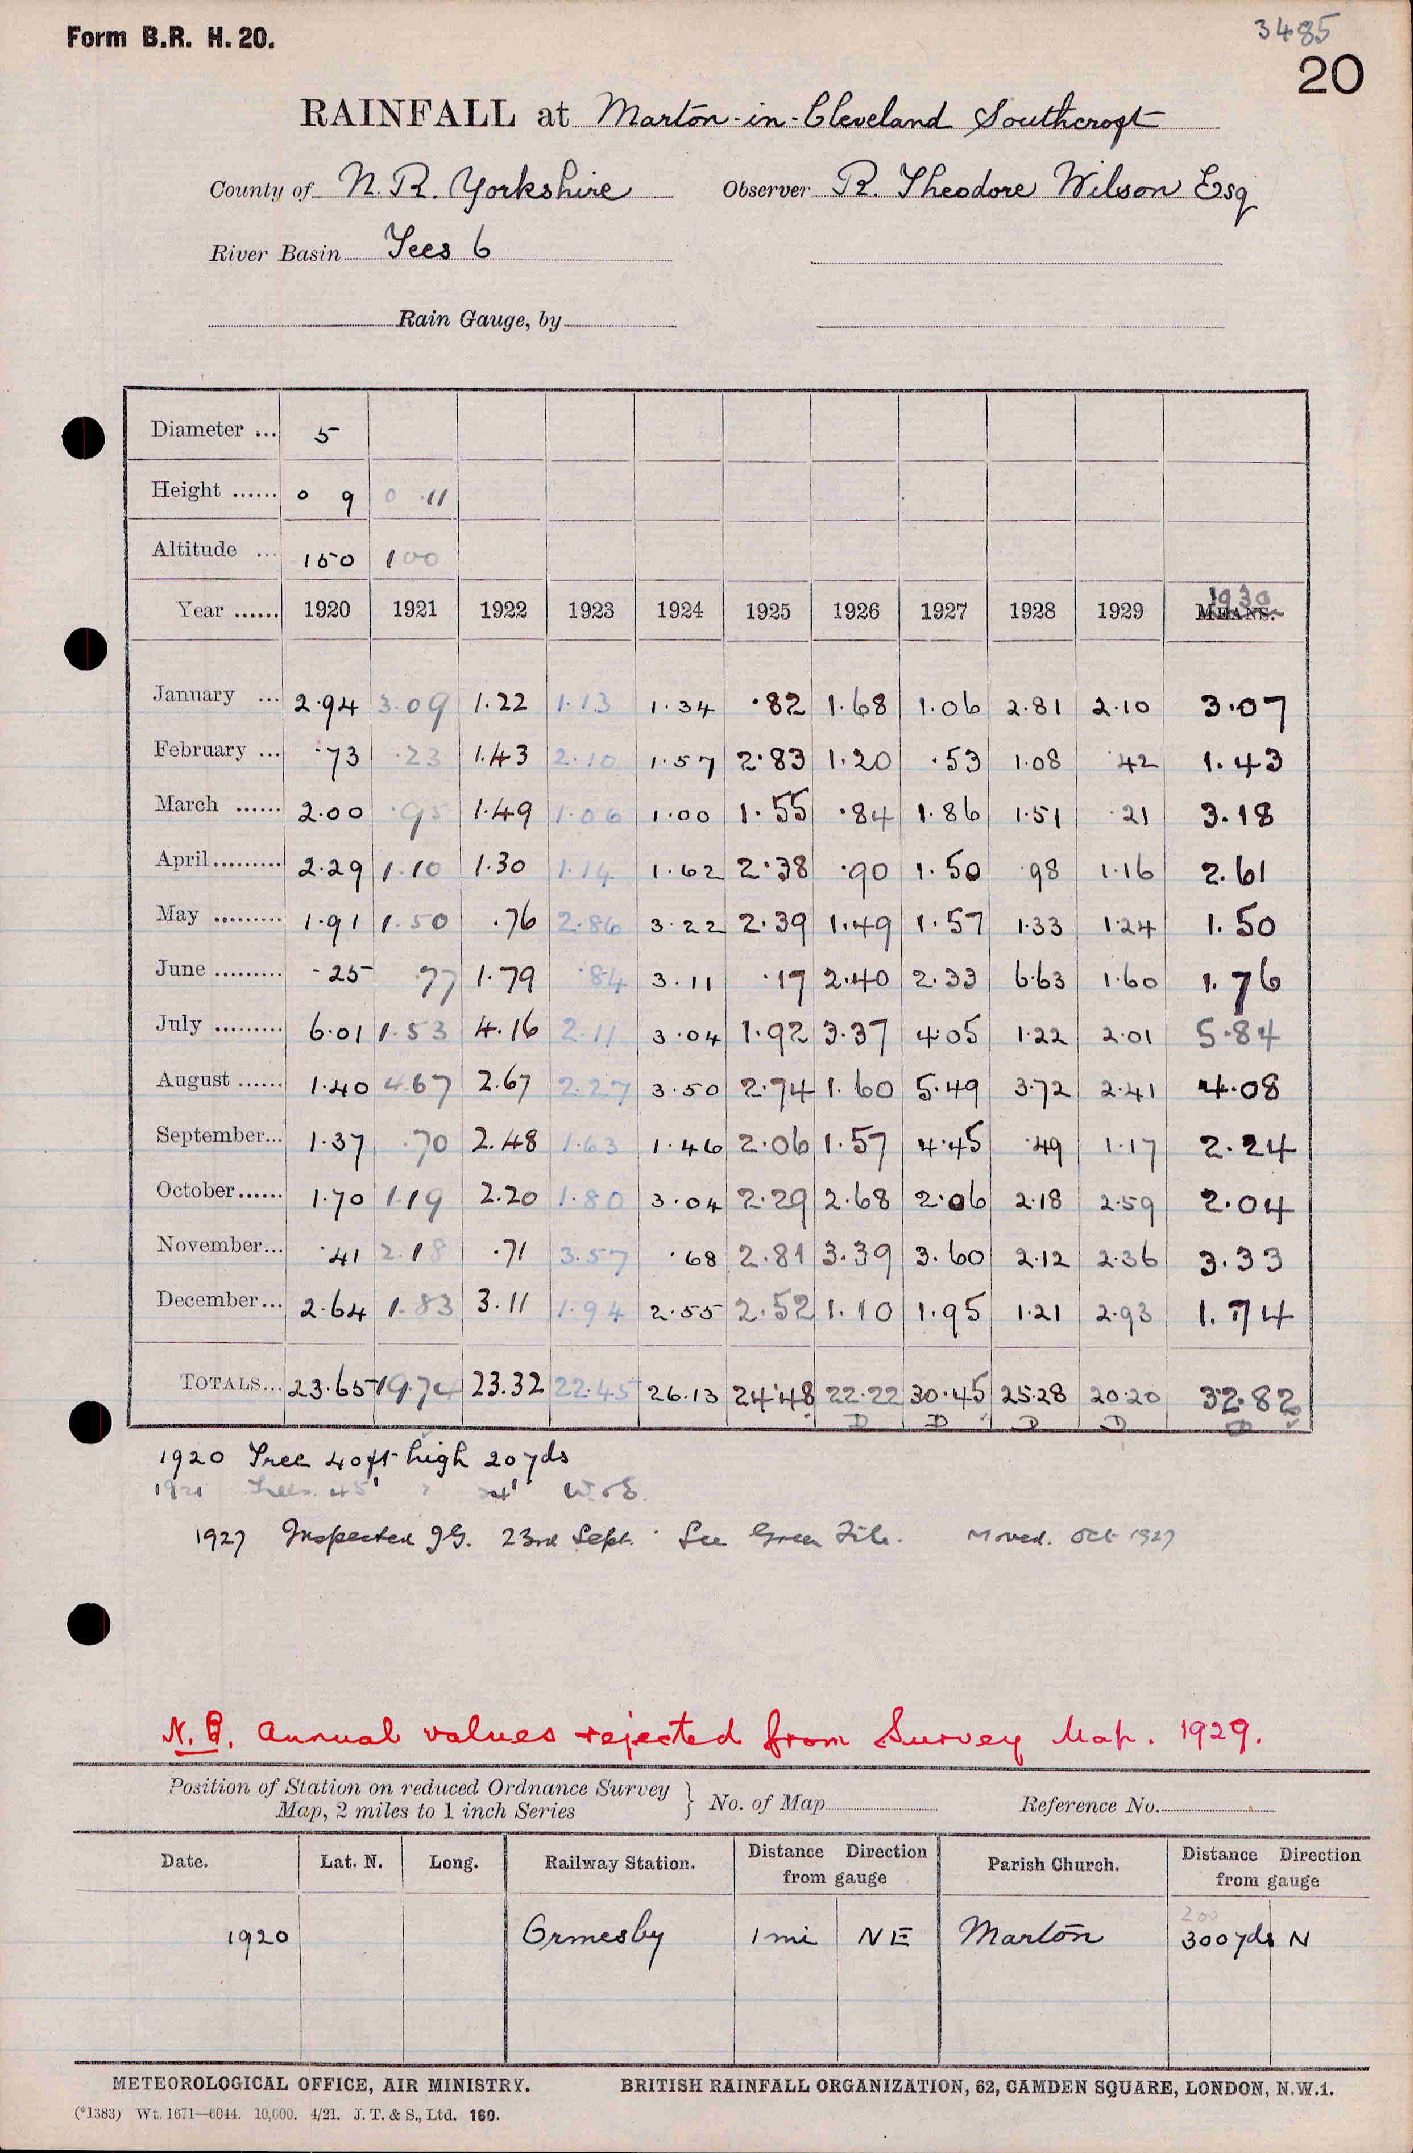 Form B.R. H. 20.
3485
20
RAINFALL at Marton-in-Cleveland Southcroft
County of N. R. Yorkshire Observer R. Theodore Wilson Esq
River Basin Tees 6
Rain Gauge, by
Diameter ... 5
Height ...... 0 9 0 11
Altitude ... 150 100
Year ...... 1920 1921 1922 1923 1924 1925 1926 1927 1928 1929 MEANS. 1930
January ... 2.94 3.09 1.22 1.13 1.34 .82 1.68 1.06 2.81 2.10 3.07
February ... .73 .23 1.43 2.10 1.57 2.83 1.20 .53 1.08 .42 1.43
March ...... 2.00 .95 1.49 1.06 1.00 1.55 .84 1.86 1.51 .21 3.18
April ......... 2.29 1.10 1.30 1.14 1.62 2.38 .90 1.50 .98 1.16 2.61
May ......... 1.91 1.50 .76 2.86 3.22 2.39 1.49 1.57 1.33 1.24 1.50
June ......... .25 .77 1.79 .84 3.11 .17 2.40 2.33 6.63 1.60 1.76
July ......... 6.01 1.53 4.16 2.11 3.04 1.92 3.37 4.05 1.22 2.01 5.84
August ...... 1.40 4.67 2.67 2.27 3.50 2.74 1.60 5.49 3.72 2.41 4.08
September... 1.37 .70 2.48 1.63 1.46 2.06 1.57 4.45 .49 1.17 2.24
October...... 1.70 1.19 2.20 1.80 3.04 2.29 2.68 2.06 2.18 2.59 2.04
November... .41 2.18 .71 3.57 .68 2.81 3.39 3.60 2.12 2.36 3.33
December... 2.64 1.83 3.11 1.94 2.55 2.52 1.10 1.95 1.21 2.93 1.74
TOTALS... 23.65 19.74 23.32 22.45 26.13 24.48 22.22 30.45 25.28 20.20 32.82
D D D D D
1920 Tree 40ft high 20yds
1921 Trees 45' W. & E.
1927 Inspected J.G. 23rd Sept. See Green File. Moved. Oct 1927
N.B. Annual values rejected from Survey Map. 1929.
Position of Station on reduced Ordnance Survey Map, 2 miles to 1 inch Series } No. of Map Reference No.
Date. Lat. N. Long. Railway Station. Distance Direction from gauge Parish Church. Distance Direction from gauge
200
1920 Ormesby 1 mi NE Marton 300 yds N
METEOROLOGICAL OFFICE, AIR MINISTRY. BRITISH RAINFALL ORGANIZATION, 62, CAMDEN SQUARE, LONDON, N.W.1.
(*1383) Wt. 1671—6044. 10,000. 4/21. J. T. & S., Ltd. 160.